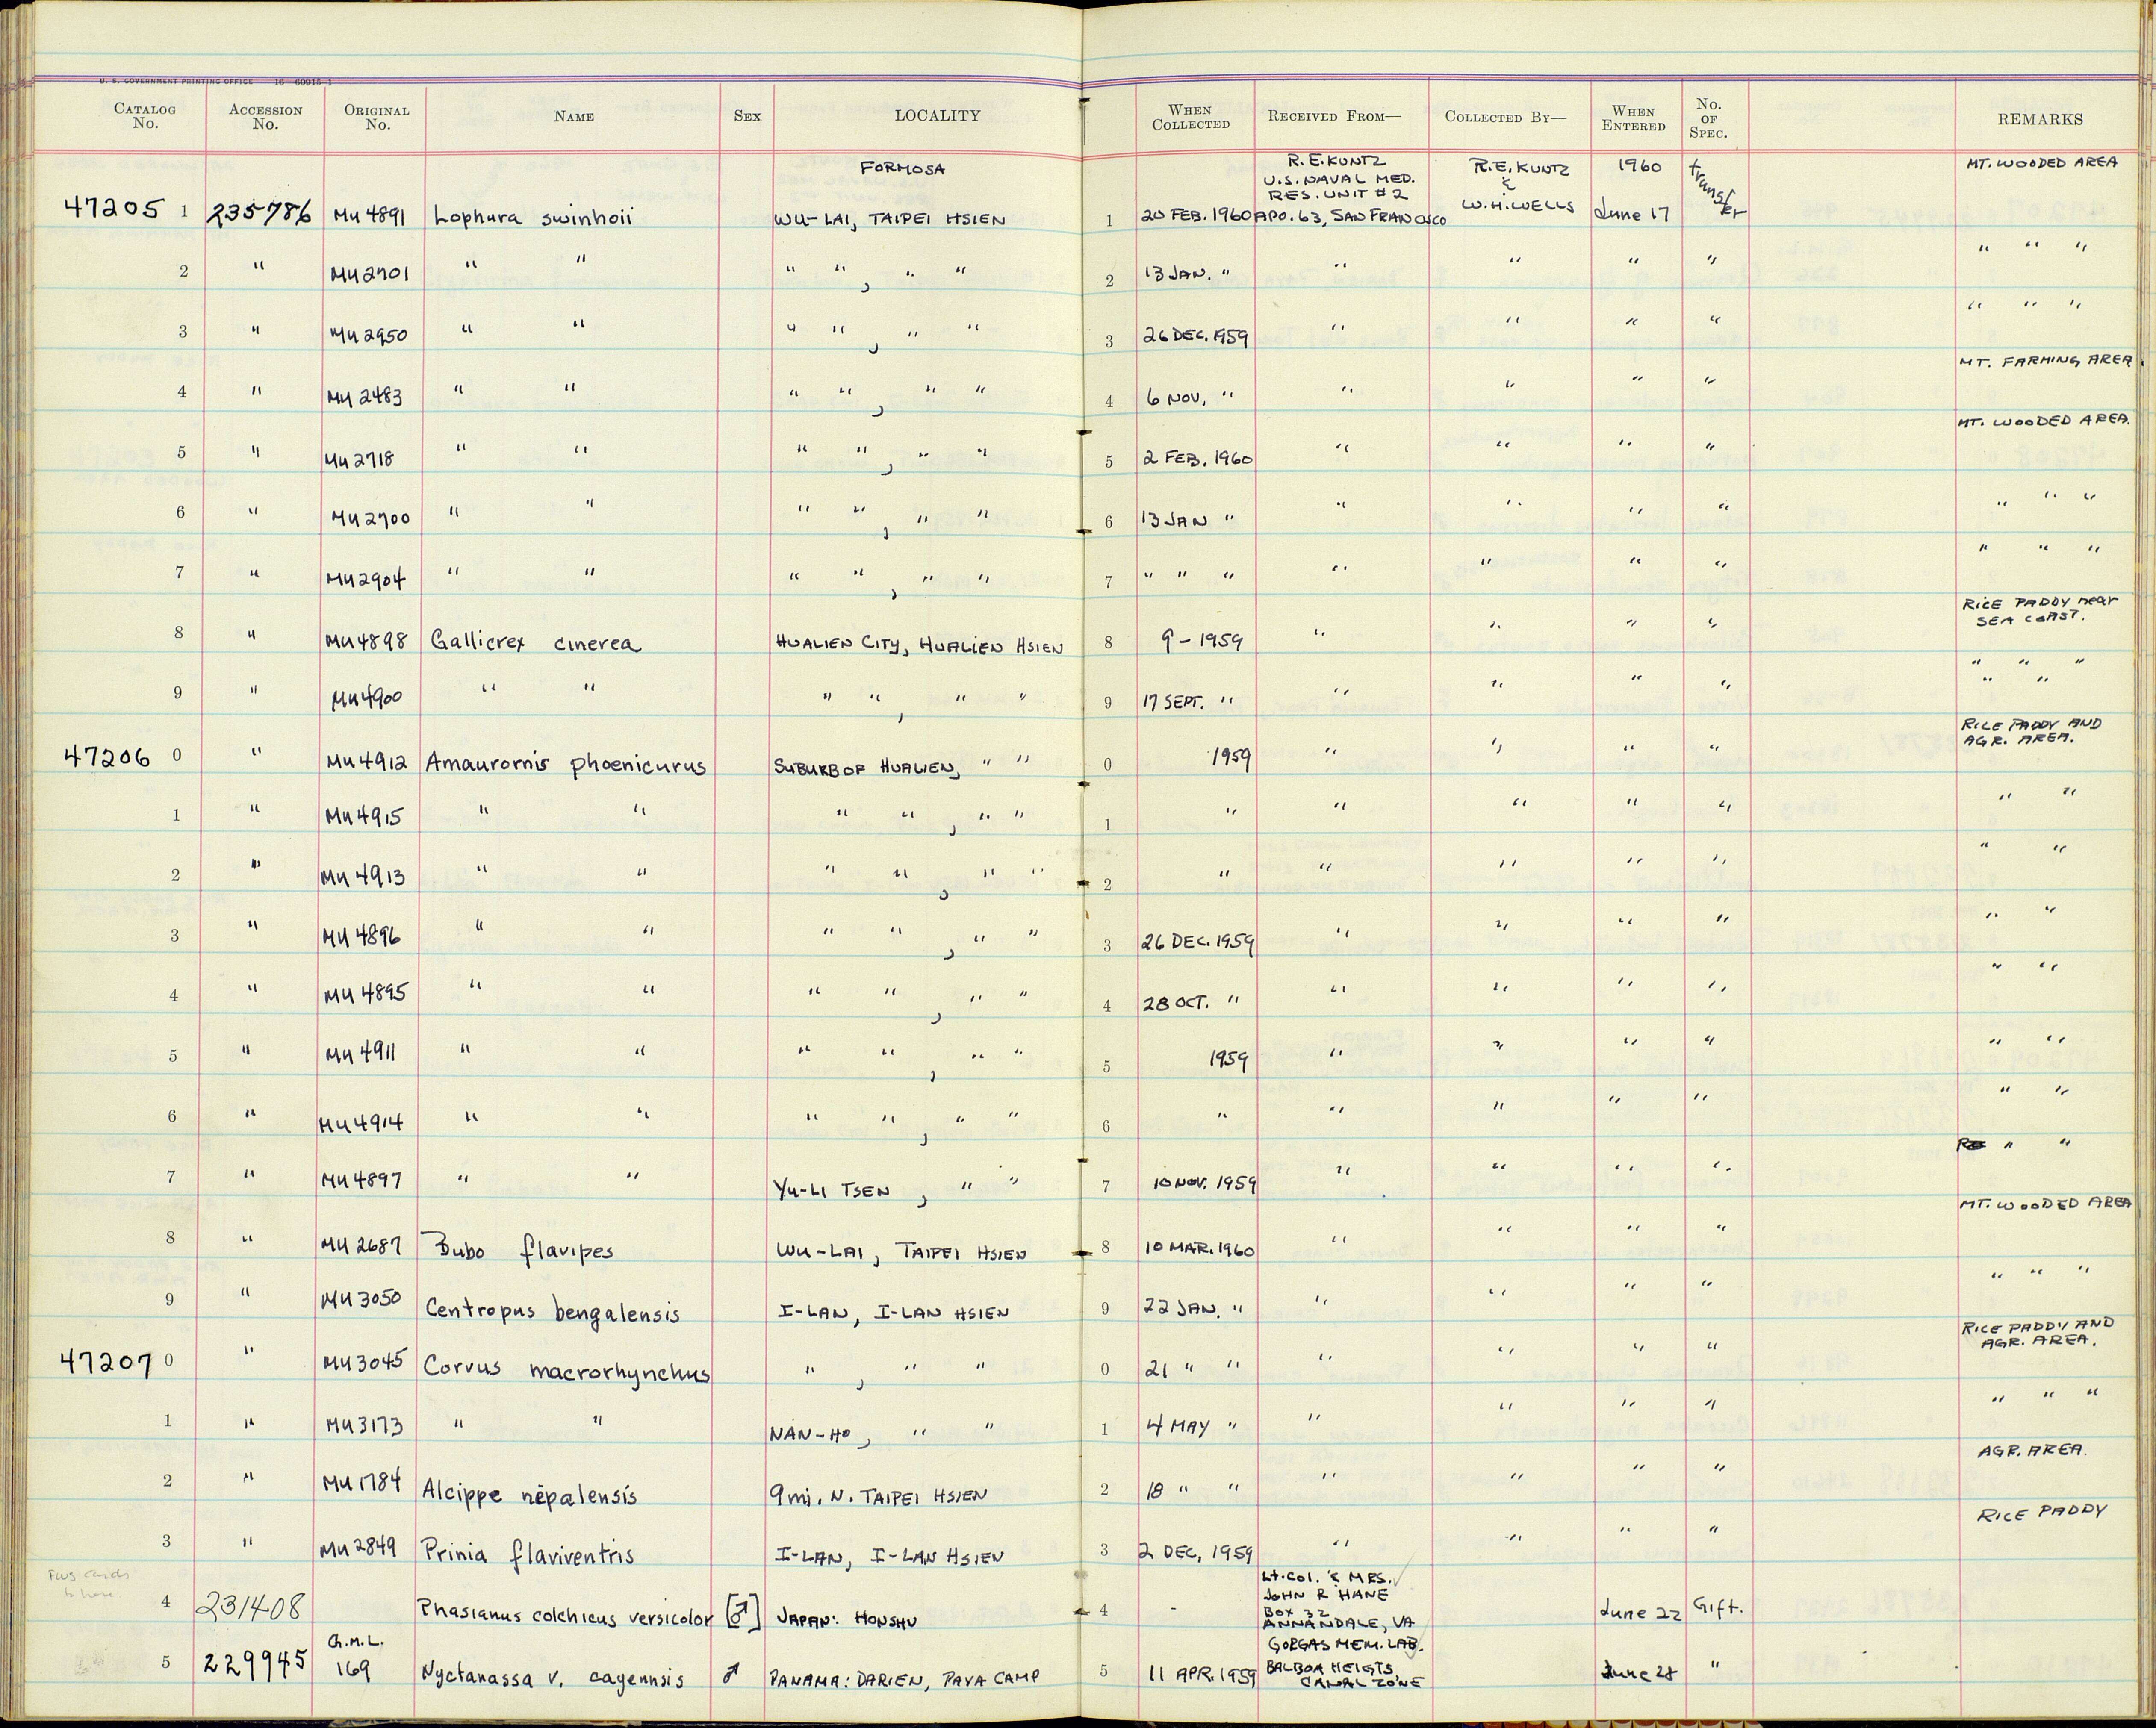 U. S. GOVERNMENT PRINTING OFFICE 16—60016-1
CATALOG No. ACCESSION No. ORIGINAL No. NAME SEX LOCALITY WHEN COLLECTED RECEIVED FROM— COLLECTED BY— WHEN ENTERED No. OF SPEC. REMARKS
FORMOSA R.E. KUNTZ R.E. KUNTZ 1960 transfer MT. WOODED AREA
U.S. NAVAL MED. &
RES. UNIT #2 W.H. WELLS
47205 1 235786 MU 4891 Lophura swinhoii WU-LAI, TAIPEI HSIEN 1 20 FEB. 1960 APO. 63, SAN FRANCISCO June 17
2 " MU 2701 " " " ", " " 2 13 JAN. " " " " " " " "
3 " MU 2950 " " " ", " " 3 26 DEC. 1959 " " " " " " "
4 " MU 2483 " " " ", " " 4 6 NOV. " " " " " MT. FARMING AREA.
5 " MU 2718 " " " ", " " 5 2 FEB. 1960 " " " " MT. WOODED AREA.
6 " MU 2700 " " " ", " " 6 13 JAN " " " " " " " "
7 " MU 2904 " " " ", " " 7 " " " " " " " " " "
8 " MU 4898 Gallicrex cinerea HUALIEN CITY, HUALIEN HSIEN 8 9 - 1959 " " " " RICE PADDY near
SEA COAST.
9 " MU 4900 " " " ", " " 9 17 SEPT. " " " " " " " "
" "
47206 0 " MU 4912 Amaurornis phoenicurus SUBURB OF HUALIEN, " " 0 1959 " " " " RICE PADDY AND
AGR. AREA.
1 " MU 4915 " " " ", " " 1 " " " " " " "
2 " MU 4913 " " " ", " " 2 " " " " " " "
3 " MU 4896 " " " ", " " 3 26 DEC. 1959 " " " " " "
4 " MU 4895 " " " ", " " 4 28 OCT. " " " " " " "
5 " MU 4911 " " " ", " " 5 1959 " " " " " "
6 " MU 4914 " " " ", " " 6 " " " " " " "
7 " MU 4897 " " YU-LI TSEN, " " 7 10 NOV. 1959 " " " " " "
8 " MU 2687 Bubo flavipes WU-LAI, TAIPEI HSIEN 8 10 MAR. 1960 " " " " MT. WOODED AREA
9 " MU 3050 Centropus bengalensis I-LAN, I-LAN HSIEN 9 22 JAN. " " " " " " " "
47207 0 " MU 3045 Corvus macrorhynchus ", " " 0 21 " " " " " " RICE PADDY AND
AGR. AREA.
1 " MU 3173 " " NAN-HO, " " 1 4 MAY " " " " " " " "
2 " MU 1784 Alcippe nepalensis 9 mi. N. TAIPEI HSIEN 2 18 " " " " " " AGR. AREA.
3 " MU 2849 Prinia flaviventris I-LAN, I-LAN HSIEN 3 2 DEC, 1959 " " " " RICE PADDY
FWS cards
to have
4 231408 Phasianus colchicus versicolor [♂] JAPAN: HONSHU 4 - LT. COL. & MRS. June 22 Gift.
JOHN R HANE
BOX 32
ANNANDALE, VA
5 229945 G.M.L. 169 Nyctanassa v. cayennsis ♂ PANAMA: DARIEN, PAYA CAMP 5 11 APR. 1959 GORGAS MEM. LAB. June 28 "
BALBOA HEIGTS,
CANAL ZONE